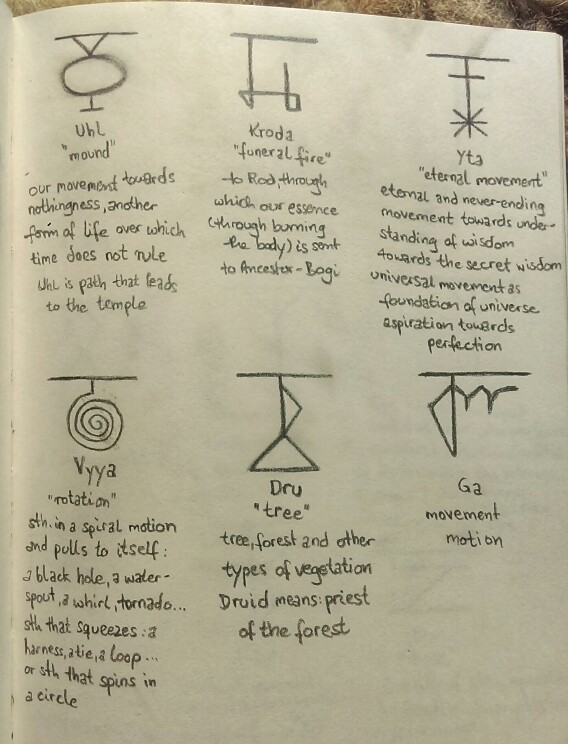 Uhl
"mound"
our movement towards
nothingness, another
form of life over which
time does not rule
Uhl is path that leads
to the temple
Kroda
"funeral fire"
to Rod, through
which our essence
(through burning
the body) is sent
to Ancestor-Bogi
Yta
"eternal movement"
eternal and never-ending
movement towards under-
standing of wisdom
towards the secret wisdom
universal movement as
foundation of universe
aspiration towards
perfection
Vyya
"rotation"
sth. in a spiral motion
and pulls to itself:
a black hole, a water-
spout, a whirl, tornado...
sth that squeezes: a
harness, a tie, a loop...
or sth that spins in
a circle
Dru
"tree"
tree, forest and other
types of vegetation
Druid means: priest
of the forest
Ga
movement
motion